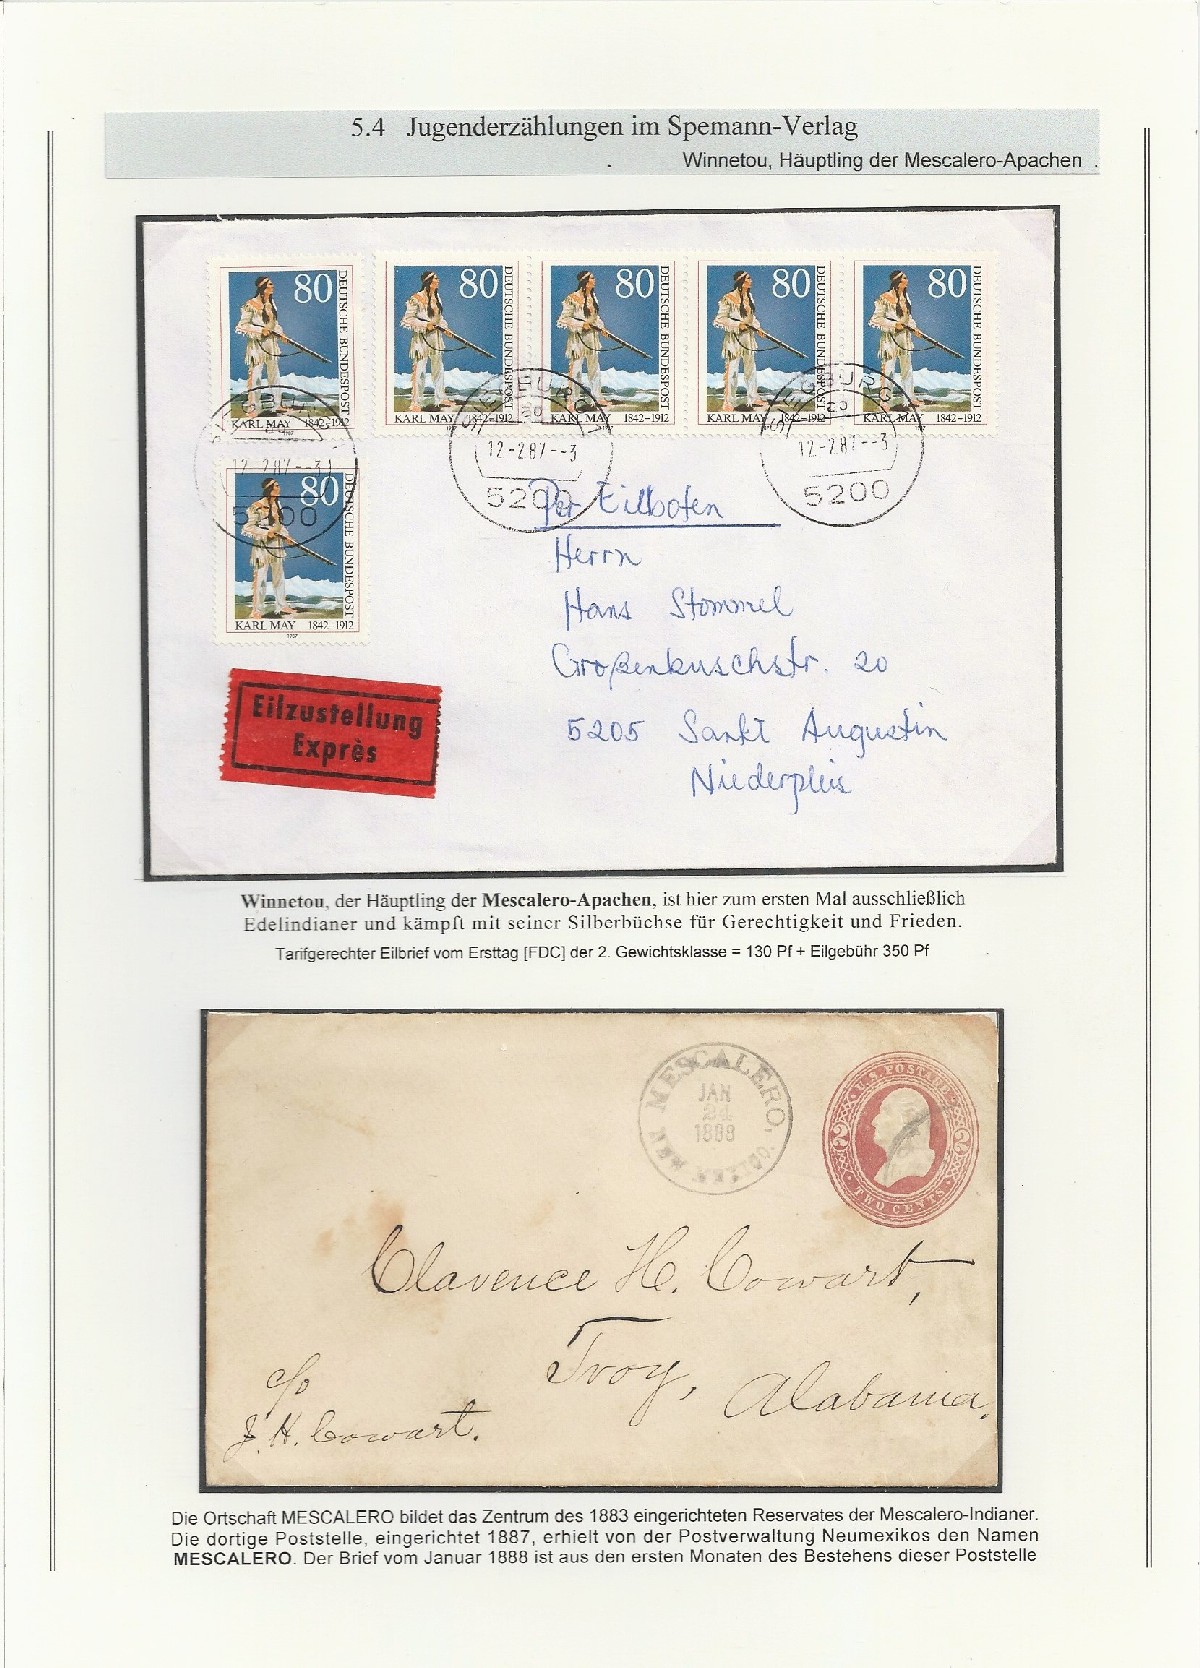 5.4 Jugenderzählungen im Spemann-Verlag
Winnetou, Häuptling der Mescalero-Apachen .
80 DEUTSCHE BUNDESPOST
KARL MAY 1842-1912
80 DEUTSCHE BUNDESPOST
KARL MAY 1842-1912
80 DEUTSCHE BUNDESPOST
KARL MAY 1842-1912
80 DEUTSCHE BUNDESPOST
KARL MAY 1842-1912
80 DEUTSCHE BUNDESPOST
KARL MAY 1842-1912
SIEGBURG 1
12-2.87--3
5200
SIEGBURG 1
12-2.87--3
5200
SIEGBURG 1
12-2.87--3
5200
80 DEUTSCHE BUNDESPOST
KARL MAY 1842-1912
Per Eilboten
Herrn
Hans Stommel
Großenbuschstr. 20
5205 Sankt Augustin
Niederpleis
Eilzustellung
Exprès
Winnetou, der Häuptling der Mescalero-Apachen, ist hier zum ersten Mal ausschließlich
Edelindianer und kämpft mit seiner Silberbüchse für Gerechtigkeit und Frieden.
Tarifgerechter Eilbrief vom Ersttag [FDC] der 2. Gewichtsklasse = 130 Pf + Eilgebühr 350 Pf
MESCALERO, NEW MEX
JAN
24
1888
U.S. POSTAGE
2 2
TWO CENTS
Clarence H. Cowart,
Troy, Alabama.
c/o
J. H. Cowart.
Die Ortschaft MESCALERO bildet das Zentrum des 1883 eingerichteten Reservates der Mescalero-Indianer.
Die dortige Poststelle, eingerichtet 1887, erhielt von der Postverwaltung Neumexikos den Namen
MESCALERO. Der Brief vom Januar 1888 ist aus den ersten Monaten des Bestehens dieser Poststelle